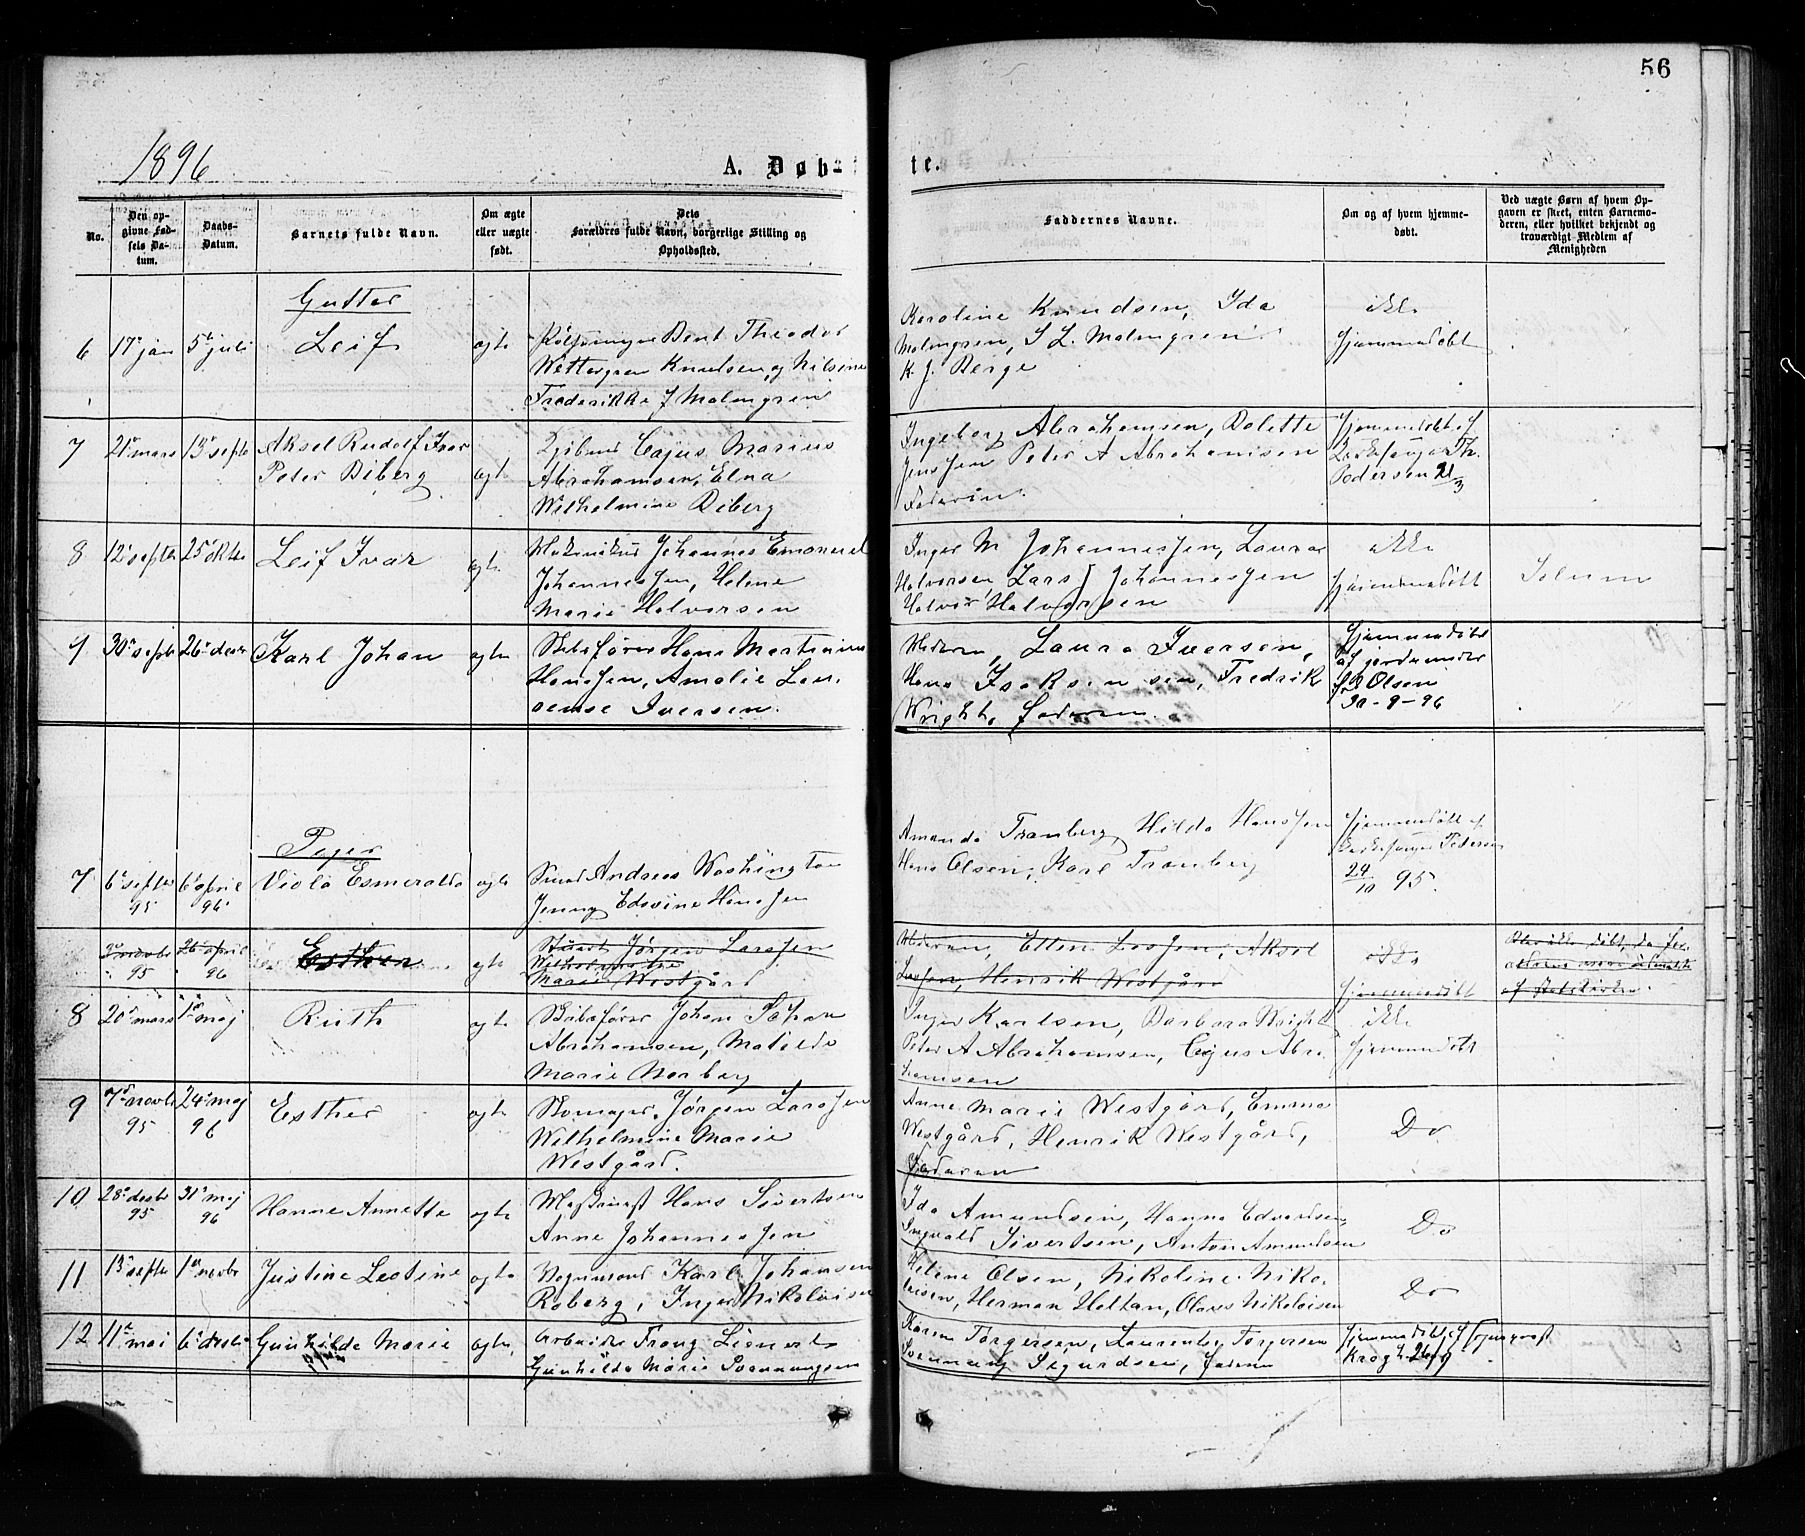 56
1896
A. Døbte.
No.
Den opgivne Fødsels Datum.
Daabs-Datum.
Barnets fulde Navn.
Om ægte eller uægte født.
Dets Forældres fulde Navn, borgerlige Stilling og Opholdssted.
Faddernes Navne.
Om og af hvem hjemmedøbt.
Ved uægte Børn af hvem Opgaven er skeet, enten Barnemoderen, eller hvilket bekjendt og troværdigt Medlem af Menigheden
Gutter
6 17 jan 5 juli Leif ægte
Bent Theodor
Wettergren Knudsen, og Nilsine
Frederikke J Malmgren
Karoline Knudsen, Ida
Malmgren, S L. Malmgren
K. J. Berge
ikke
hjemmedøbt
7 21 mars 13 septb Aksel Rudolf Ivar
Peter Diberg ægte
Cajus Marius
Abrahamsen, Elna
Wilhelmine Diberg
Ingeborg Abrahamsen, Dolette
Jenssen Peter A Abrahamsen
Faderen.
hjemmedøbt af
Th.
Pedersen 21/3
8 12 septb 25 oktb Leif Ivar ægte
Johannes Emanuel
Johannessen, Helene
Marie Halvorsen
Inger M Johannessen, Laura
Halvorsen Lars J Johannessen
Halvor Halvorsen
ikke
hjemmedøbt
Solum
9 30 septb 26 decbr Karl Johan ægte
Skibsfører Hans Martinius
Hanssen, Amalie Lau-
rense Iversen.
Moderen, Laura Iversen,
Hans Isaksen, Fredrik
Wright, faderen.
Hjemmedøbt
af jordmoder
Olsen
30-9-96
Piger
7 6 septbr 95 6 april 96 Viola Esmeralda ægte
Smed Andreas Washington
Jenny Edevine Hanssen
Amanda Tranberg, Hilda Hanssen
Hans Olsen, Karl Tranberg
hjemmedøbt af
Kirkesanger Pedersen
24/10 95.
novbr 95 26 april 96 Esther ægte
Jørgen Larssen
Wilhelmine
Marie Westgård
Moderen, Ellen Larssen, Aksel
Larssen, Henrik Westgård
ikke
hjemmedøbt
Blev ikke døbt, da
af Statskirken.
8 20 mars 1 maj Ruth ægte
Skibsfører Johan
Abrahamsen, Matilde
Marie Norberg
Inger Karlsen, Barbara Wright
Peter A Abrahamsen, Cajus Abra-
hamsen
ikke
hjemmedøbt
9 7 novbr 95 24 maj 96 Esther ægte
Skomager. Jørgen Larssen
Wilhelmine Marie
Westgård.
Anne Marie Westgård, Emma
Westgård, Henrik Westgård,
Faderen
Do
10 28 decbr 95 31 maj 96 Hanne Annette ægte
Hans Sivertsen
Anne Johannessen
Ida Amundsen, Hanna Edvardsen,
Ingvald Sivertsen, Anton Amundsen
Do
11 13 septb 1 novbr Justine Lestine ægte
Vognmand Karl Johansen
Roberg, Inger Nikolaisen
Helene Olsen, Nikoline Niko-
laisen, Herman Holtan, Olaves Nikolaisen
Do
12 11 mai 6 decbr Gunhilde Marie ægte
Arbeider Franz Lienert
Gunhilda Marie Svenningsen
Karen Torgersen, Laurentze Torgersen
Svenning Sigurdsen, Faderen
hjemmedøbt af Sogneprest
Krogh 26/9